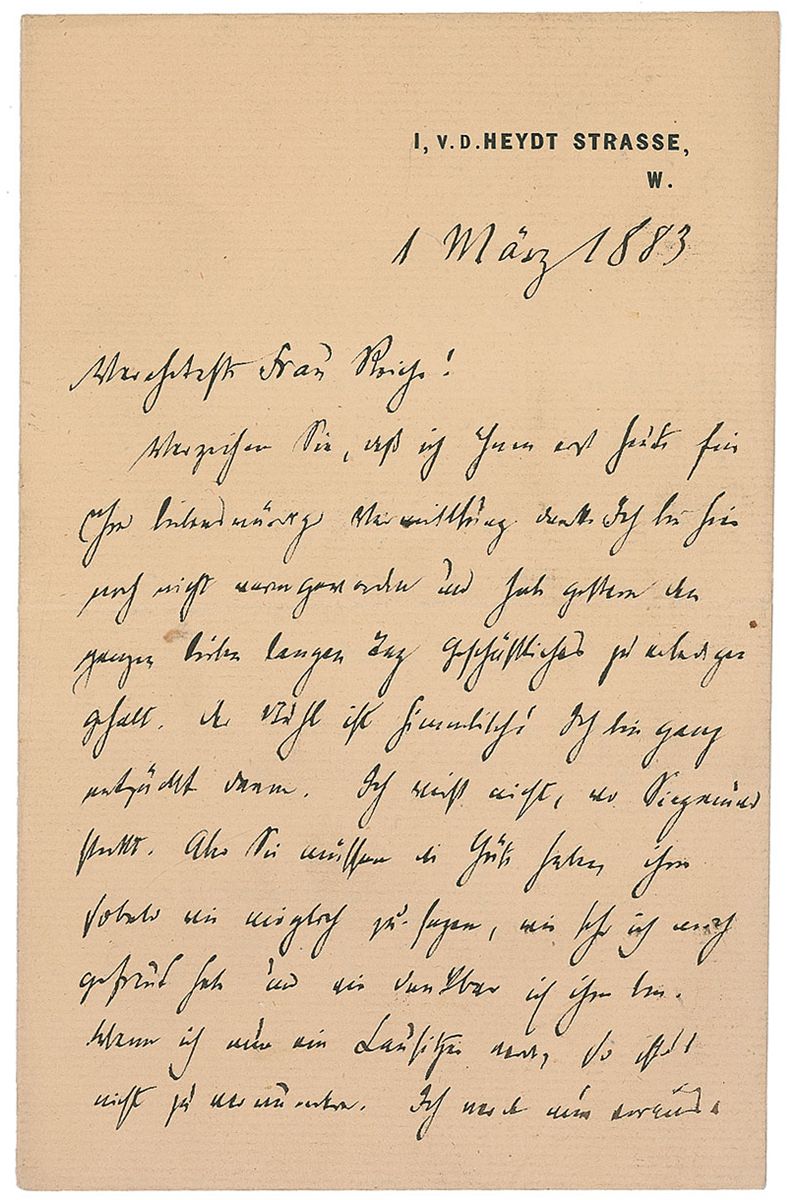 I, V. D. HEYDT STRASSE,
W.
1 März 1883
Verehrteste Frau Reiche!
Verzeihen Sie, daß ich Ihnen erst heute für
Ihre liebenswürdige Vermittlung danke. Ich bin hier
noch nicht warmgeworden und habe gestern den
ganzen lieben langen Tag Geschäftliches zu erledigen
gehabt. Der Stuhl ist himmlisch! Ich bin ganz
entzückt davon. Ich weiß nicht, wo Siegmund
steckt. Also Sie müssen die Güte haben, ihm
sobald wie möglich zu sagen, wie sehr ich mich
gefreut habe und wie dankbar ich ihm bin.
Wenn ich nun ein Lausitzer werde, so ist's
nicht zu verwundern. Ich werde nun